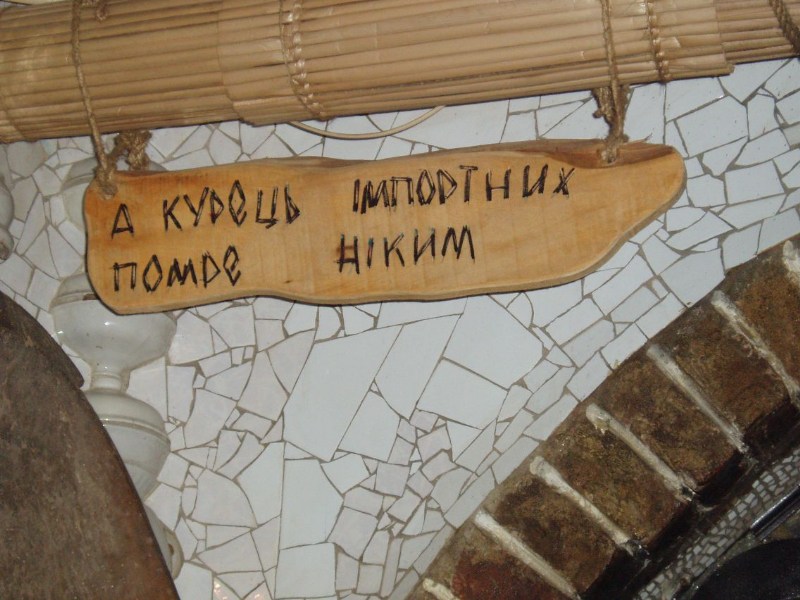 А КУРЕЦЬ ІМПОРТНИХ
ПОМРЕ НІКИМ